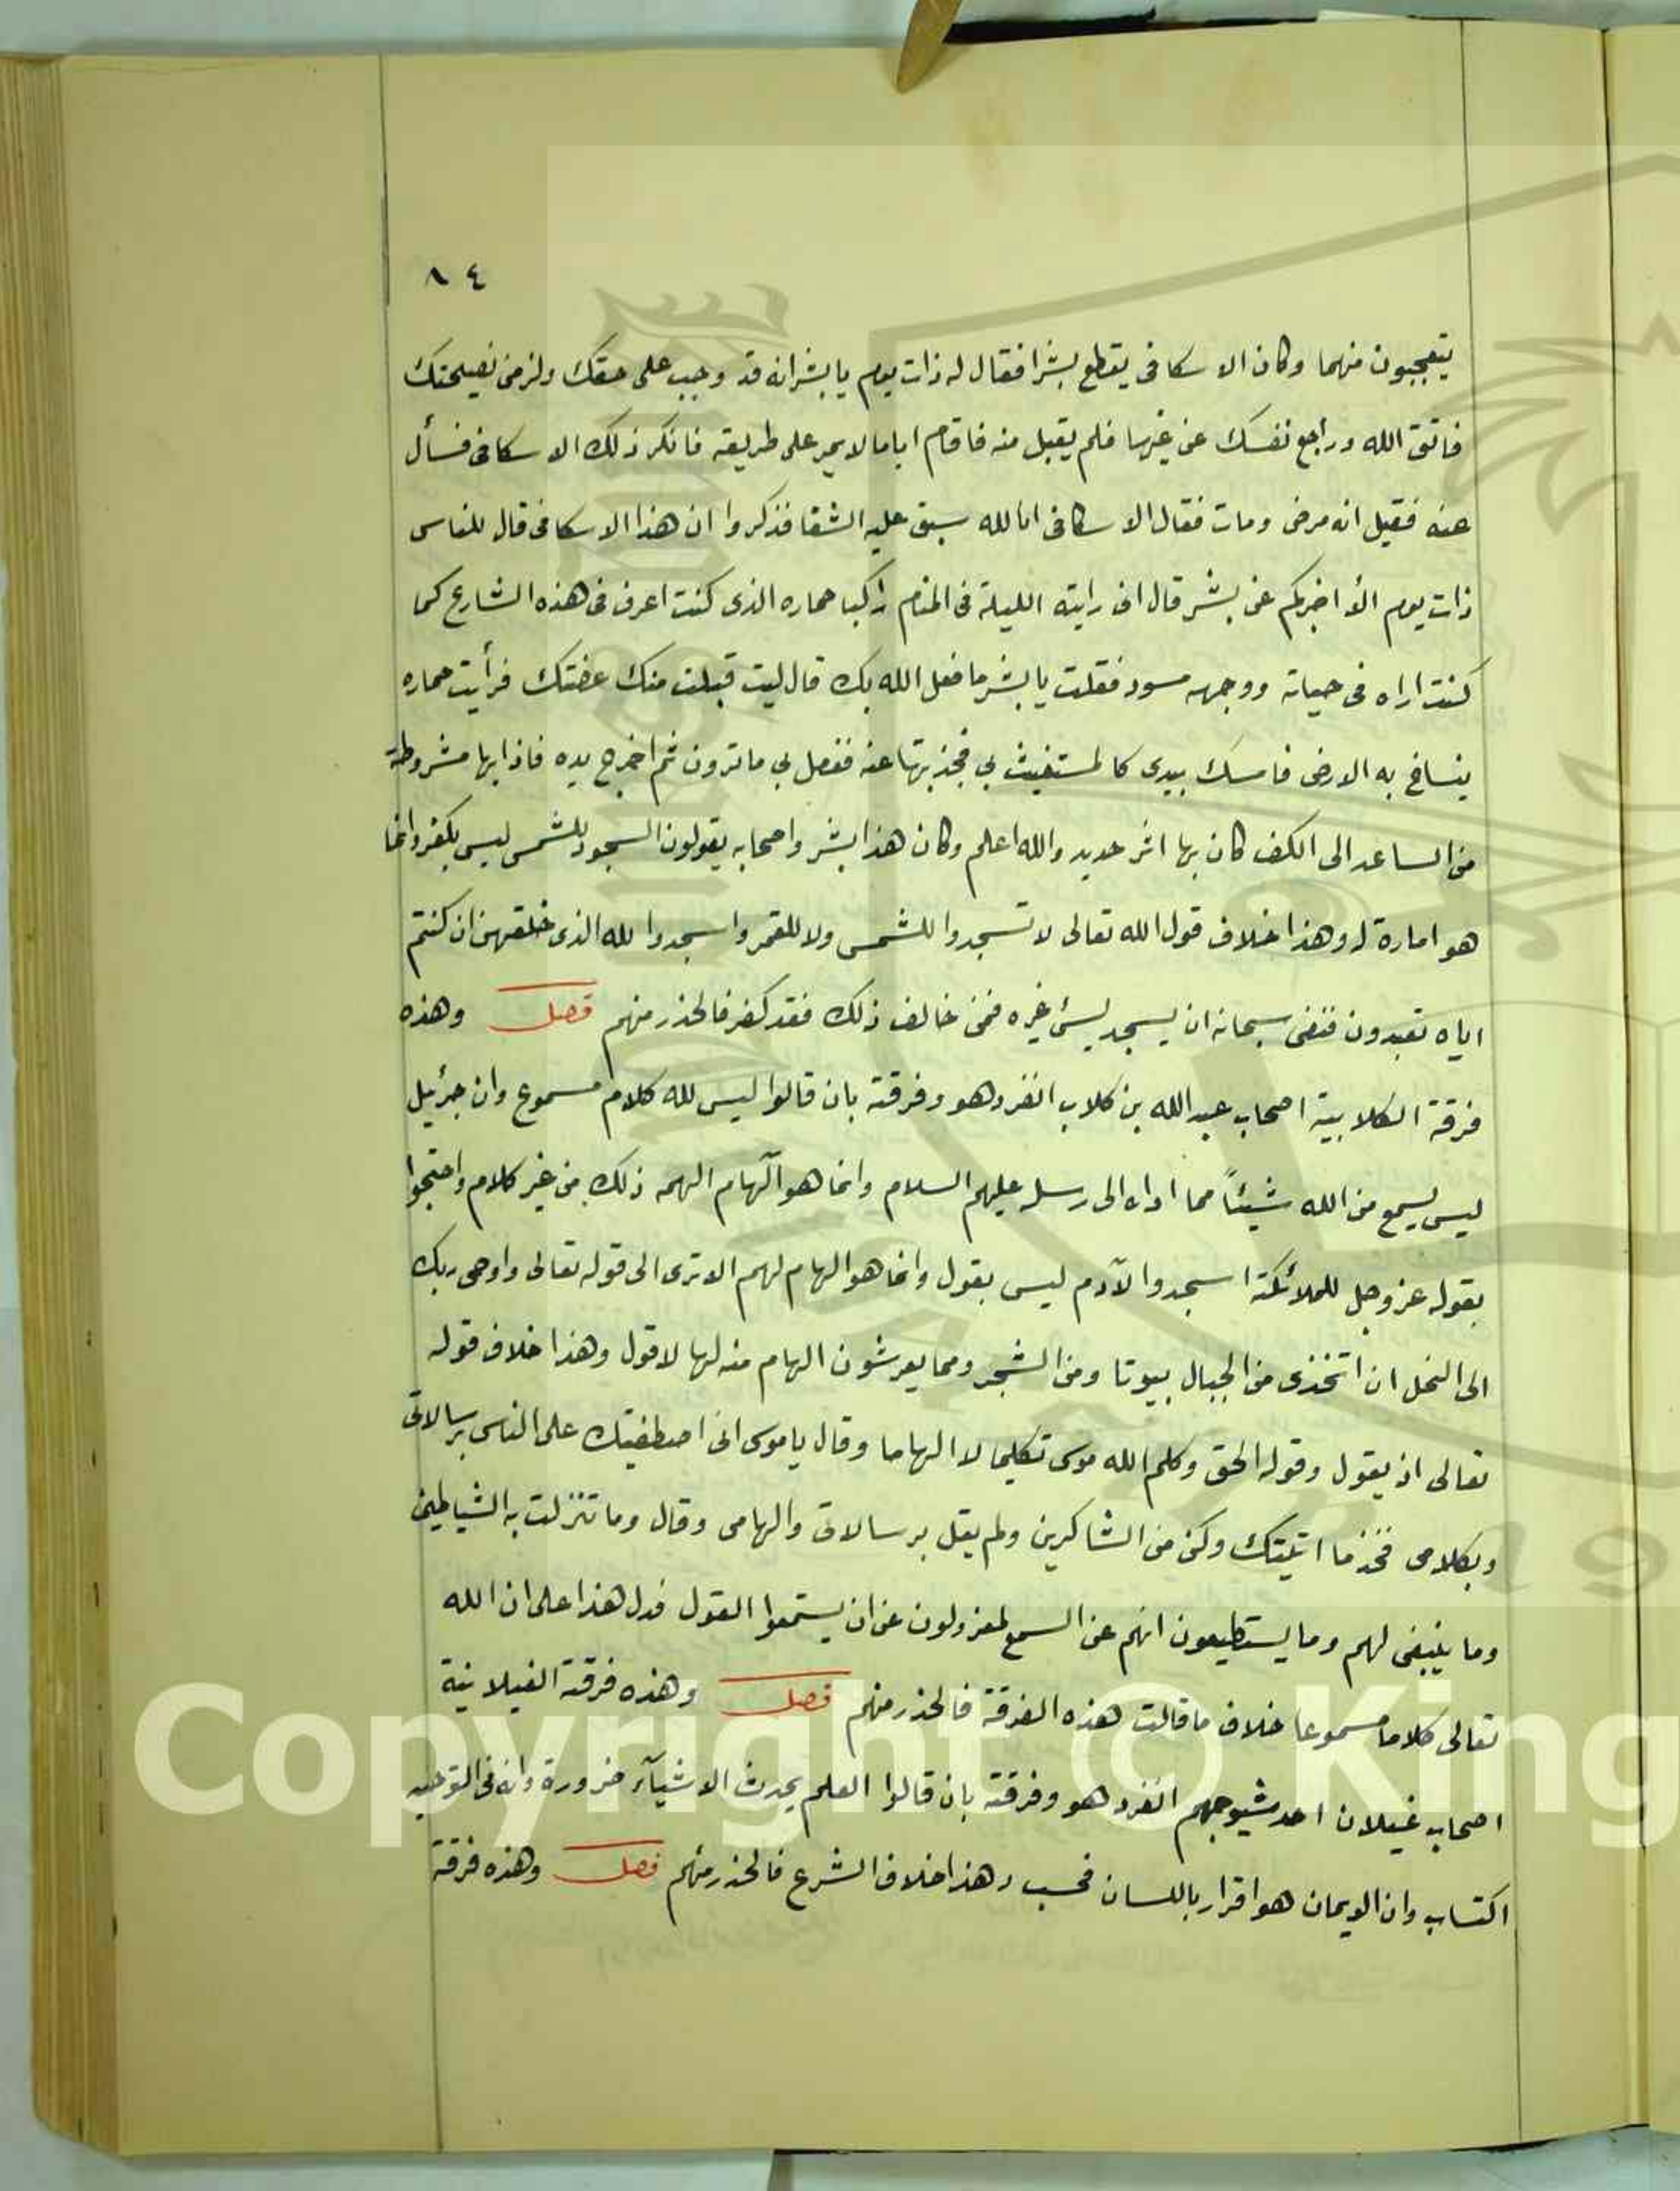 ٨٤
يتعجبون منهما وكان الاسكافى يقطع بشرا فقال له ذات يوم يا بشر انه قد وجب على حقك ولزمنى نصيحتك
فاتق الله وراجع نفسك عن غيها فلم يقبل منه فاقام اياما لا يمر على طريقه فانكر ذلك الاسكافى فسأل
عنه فقيل انه مرض ومات فقال الاسكافى انا لله سبق عليه الشقا فذكروا ان هذا الاسكافى قال للناس
ذات يوم الأ اخبركم عن بشر قال انى رايته الليلة فى المنام راكبا حماره الذى كنت اعرف فى هذه الشارع كما
كنت اراه فى حياته ووجهه مسود فقلت يا بشر ما فعل الله بك قال ليت قبلت منك عضتك فرأيت حماره
ينساخ به الارض فامسك بيدى كالمستغيث بي فجذبتها عنه ففعل بي ما ترون ثم اخرج يده فاذا بها مشروطة
من الساعد الى الكف كان بها اثر حديد والله اعلم وكان هذا بشر واصحابه يقولون السجود للشمس ليس بكفر وانما
هو امارة له وهذا خلاف قول الله تعالى لا تسجدوا للشمس ولا للقمر واسجدوا لله الذى خلقهن ان كنتم
اياه تعبدون فنفى سبحانه ان يسجد لشئ غيره فمن خالف ذلك فقد كفر فالحذر منهم فصل وهذه
فرقة الكلابية اصحاب عبد الله بن كلاب انفرد هو وفرقته بان قالوا ليس لله كلام مسموع وان جبرئيل
ليس يسمع من الله شيئاً مما اداه الى رسله عليهم السلام وانما هو الهام الهمه ذلك من غير كلام واحتجوا
بقوله عز وجل للملائكة اسجدوا لآدم ليس بقول وانما هو الهام لهم الا ترى الى قوله تعالى واوحى ربك
الى النحل ان اتخذى من الجبال بيوتا ومن الشجر ومما يعرشون الهام منه لها لا قول وهذا خلاف قوله
تعالى اذ يقول وقوله الحق وكلم الله موسى تكليما لا الهاما وقال يا موسى انى اصطفيتك على الناس برسالاتى
وبكلامى فخذ ما اتيتك وكن من الشاكرين ولم يقل برسالاتى والهامى وقال وما تنزلت به الشياطين
وما ينبغى لهم وما يستطيعون انهم عن السمع لمعزولون عن ان يستمعوا القول فدل هذا على ان الله
تعالى كلاما مسموعا خلاف ما قالت هذه الفرقة فالحذر منهم فصل وهذه فرقة الغيلانية
اصحاب غيلان احد شيوخهم انفرد هو وفرقته بان قالوا العلم بحدث الاشيآء ضرورة وانه فى التوحيد
اكتساب وان الايمان هو اقرار باللسان فحسب وهذا خلاف الشرع فالحذر منهم فصل وهذه فرقة
Copyright © King